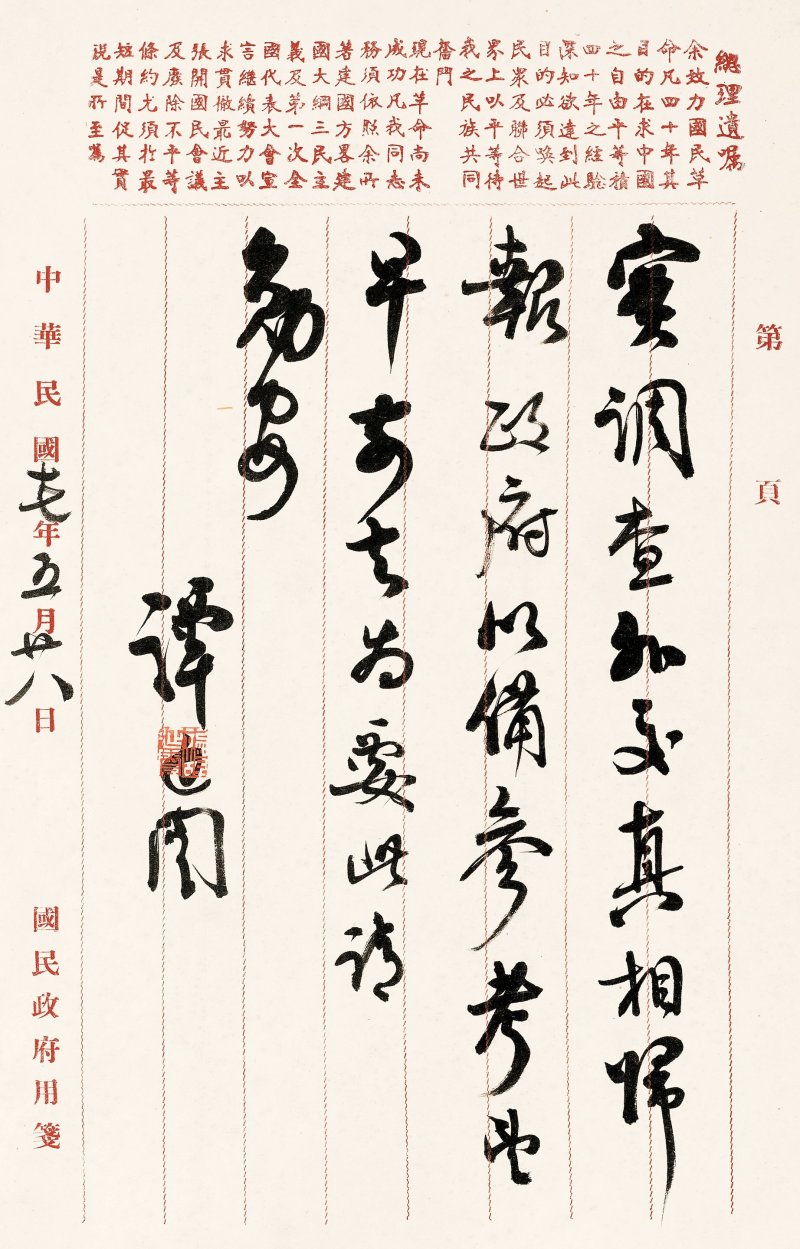 總理遺囑
余致力國民革
命凡四十年其
目的在求中國
之自由平等積
四十年之經驗
深知欲達到此
目的必須喚起
民眾及聯合世
界上以平等待
我之民族共同
奮鬥
現在革命尚未
成功凡我同志
務須依照余所
著建國方畧建
國大綱三民主
義及第一次全
國代表大會宣
言繼續努力以
求貫徹最近主
張開國民會議
及廢除不平等
條約尤須於最
短期間促其實
現是所至囑
第 頁
實調查外交真相歸
報政府以備參考望
早前去為要此請
勛安
譚延闓
中華民國十七年五月廿八日
國民政府用箋